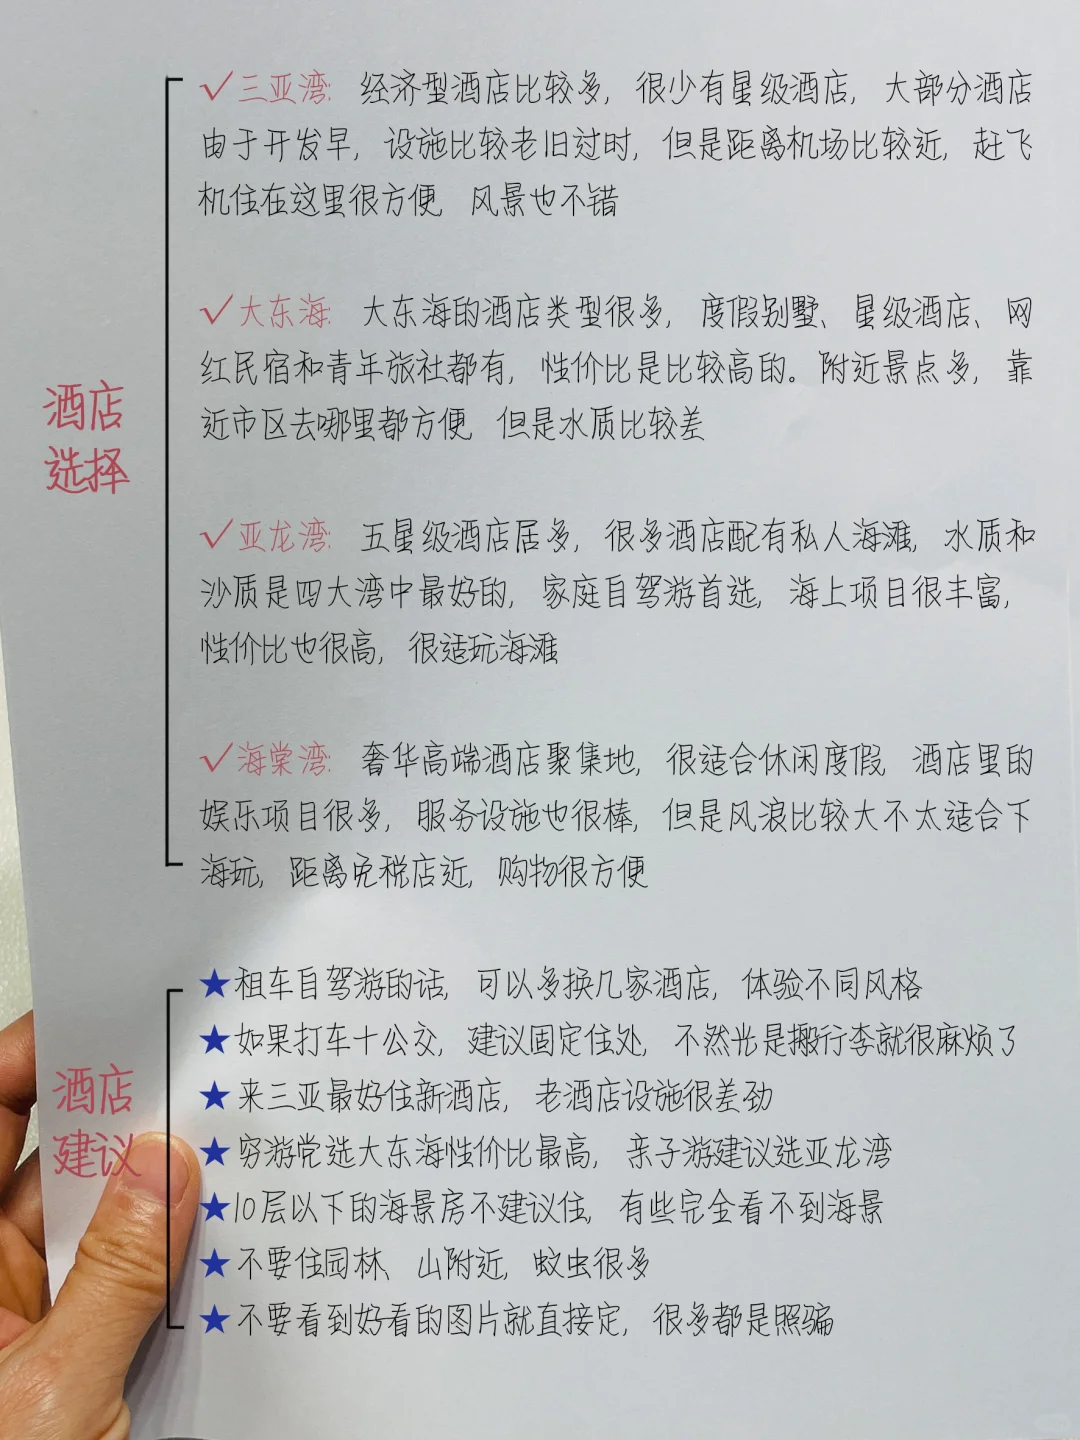 酒店
选择
✓三亚湾: 经济型酒店比较多, 很少有星级酒店, 大部分酒店
由于开发早, 设施比较老旧过时, 但是距离机场比较近, 赶飞
机住在这里很方便 风景也不错
✓大东海: 大东海的酒店类型很多, 度假别墅、星级酒店、网
红民宿和青年旅社都有, 性价比是比较高的。附近景点多, 靠
近市区去哪里都方便 但是水质比较差
✓亚龙湾: 五星级酒店居多, 很多酒店配有私人海滩, 水质和
沙质是四大湾中最好的, 家庭自驾游首选, 海上项目很丰富,
性价比也很高, 很适玩海滩
✓海棠湾: 奢华高端酒店聚集地, 很适合休闲度假, 酒店里的
娱乐项目很多, 服务设施也很棒, 但是风浪比较大不太适合下
海玩, 距离免税店近, 购物很方便
酒店
建议
★租车自驾游的话, 可以多换几家酒店, 体验不同风格
★如果打车十公交, 建议固定住处, 不然光是搬行李就很麻烦了
★来三亚最好住新酒店, 老酒店设施很差劲
★穷游党选大东海性价比最高, 亲子游建议选亚龙湾
★10层以下的海景房不建议住, 有些完全看不到海景
★不要住园林、山附近, 蚊虫很多
★不要看到好看的图片就直接定, 很多都是照骗